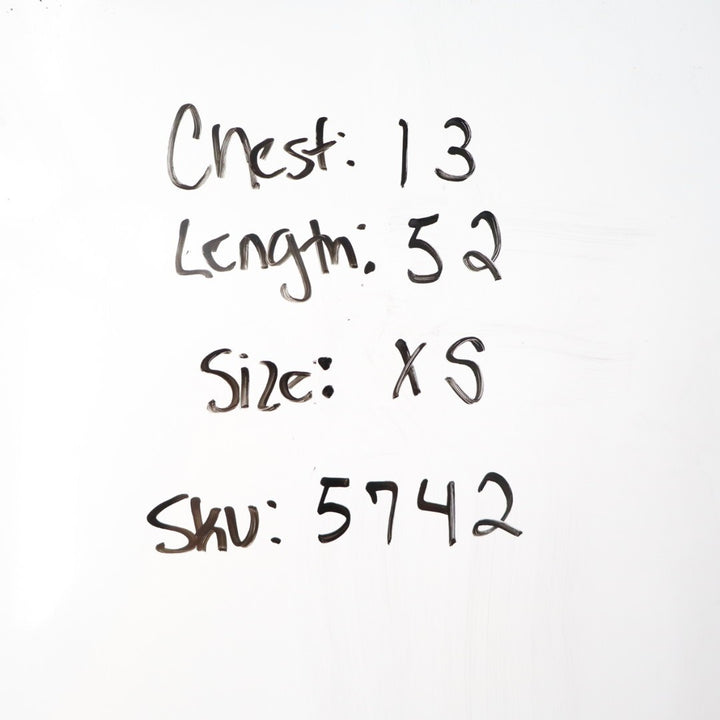 Chest: 13
Length: 52
Size: XS
Sku: 5742